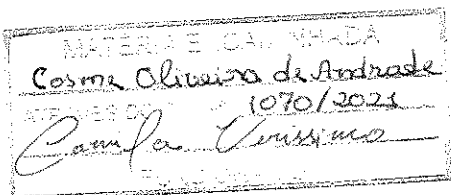 MATÉRIA E CA NHADA
Cosme Oliveira de Andrade
1070/2021
Camila Verissimo